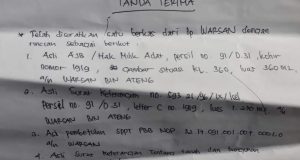 TANDA TERIMA
* Telah diserahkan satu berkas dari Bp. WARSAN dengan
rincian sebagai berikut :
1. Asli AJB / Hak Milik Adat, persil no. 91 / D.31, kohir
nomor 1919, gambar situasi kl. 360, luas 360 m2
a/n WARSAN BIN ATENG
2. Asli Surat Keterangan
Persil no. 91 / D.31, letter C no. 1919, luas
a/n WARSAN BIN ATENG
3. Asli pembetulan SPPT PBB NOP
a/n WARSAN
4. Asli Surat Keterangan Tentang tanah dan bangunan